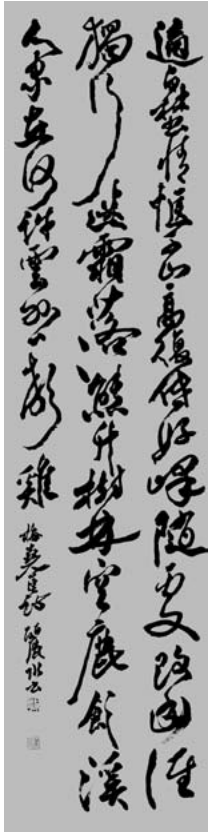 適與野情愜千山高復低好峰隨處改幽徑
獨行迷霜落熊升樹林空鹿飲溪
人家在何許雲外一聲雞
梅堯臣詩